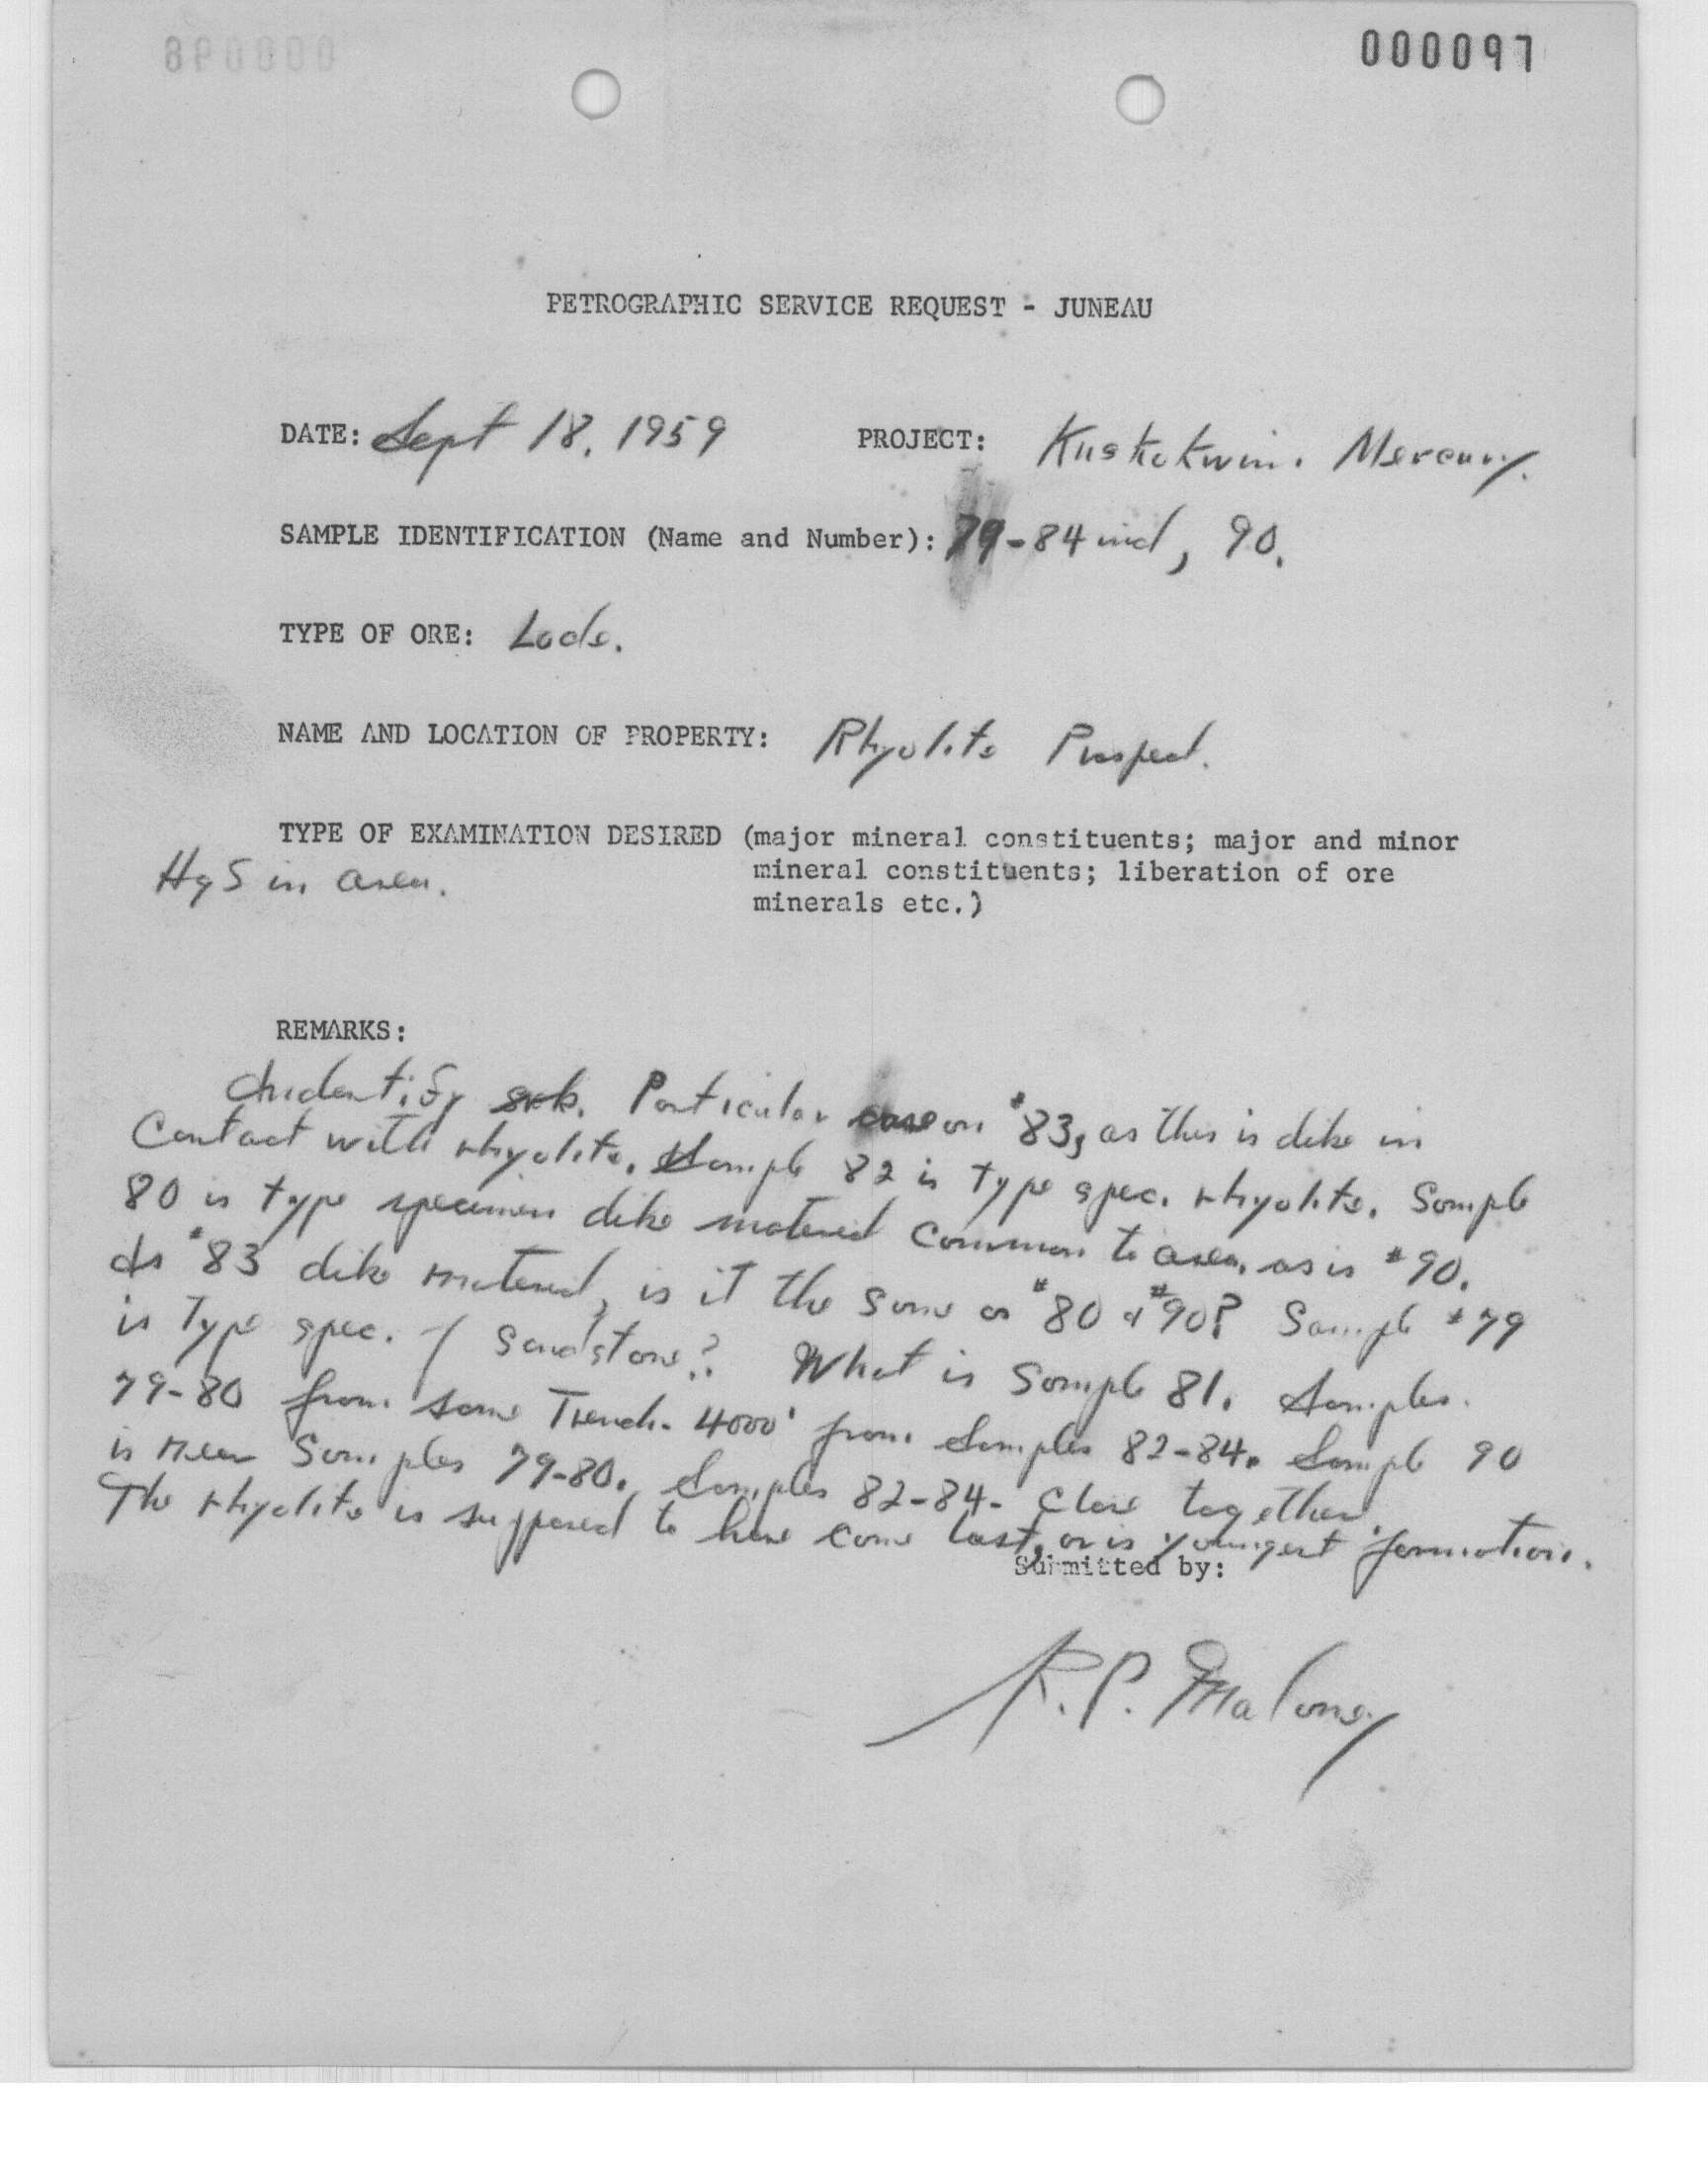 000097
PETROGRAPHIC SERVICE REQUEST - JUNEAU
DATE: Sept 18, 1959 PROJECT: Kuskokwim Mercury.
SAMPLE IDENTIFICATION (Name and Number): 79-84 incl, 90.
TYPE OF ORE: Lode.
NAME AND LOCATION OF PROPERTY: Rhyolite Prospect.
TYPE OF EXAMINATION DESIRED (major mineral constituents; major and minor
HgS in area. mineral constituents; liberation of ore
minerals etc.)
REMARKS:
Identify Particular care on #83, as this is dike in
Contact with rhyolite. Sample 82 is type spec. rhyolite. Sample
80 is type specimen dike material common to area, as is #90.
Is #83 dike material, is it the same as #80 & #90? Sample #79
is type spec. of sandstone? What is sample 81. Samples
79-80 from same Trench. 4000' from samples 82-84. Sample 90
is near Samples 79-80. Samples 82-84- close together.
The rhyolite is supposed to have come last, or is youngest formation.
Submitted by:
R.P. Maloney